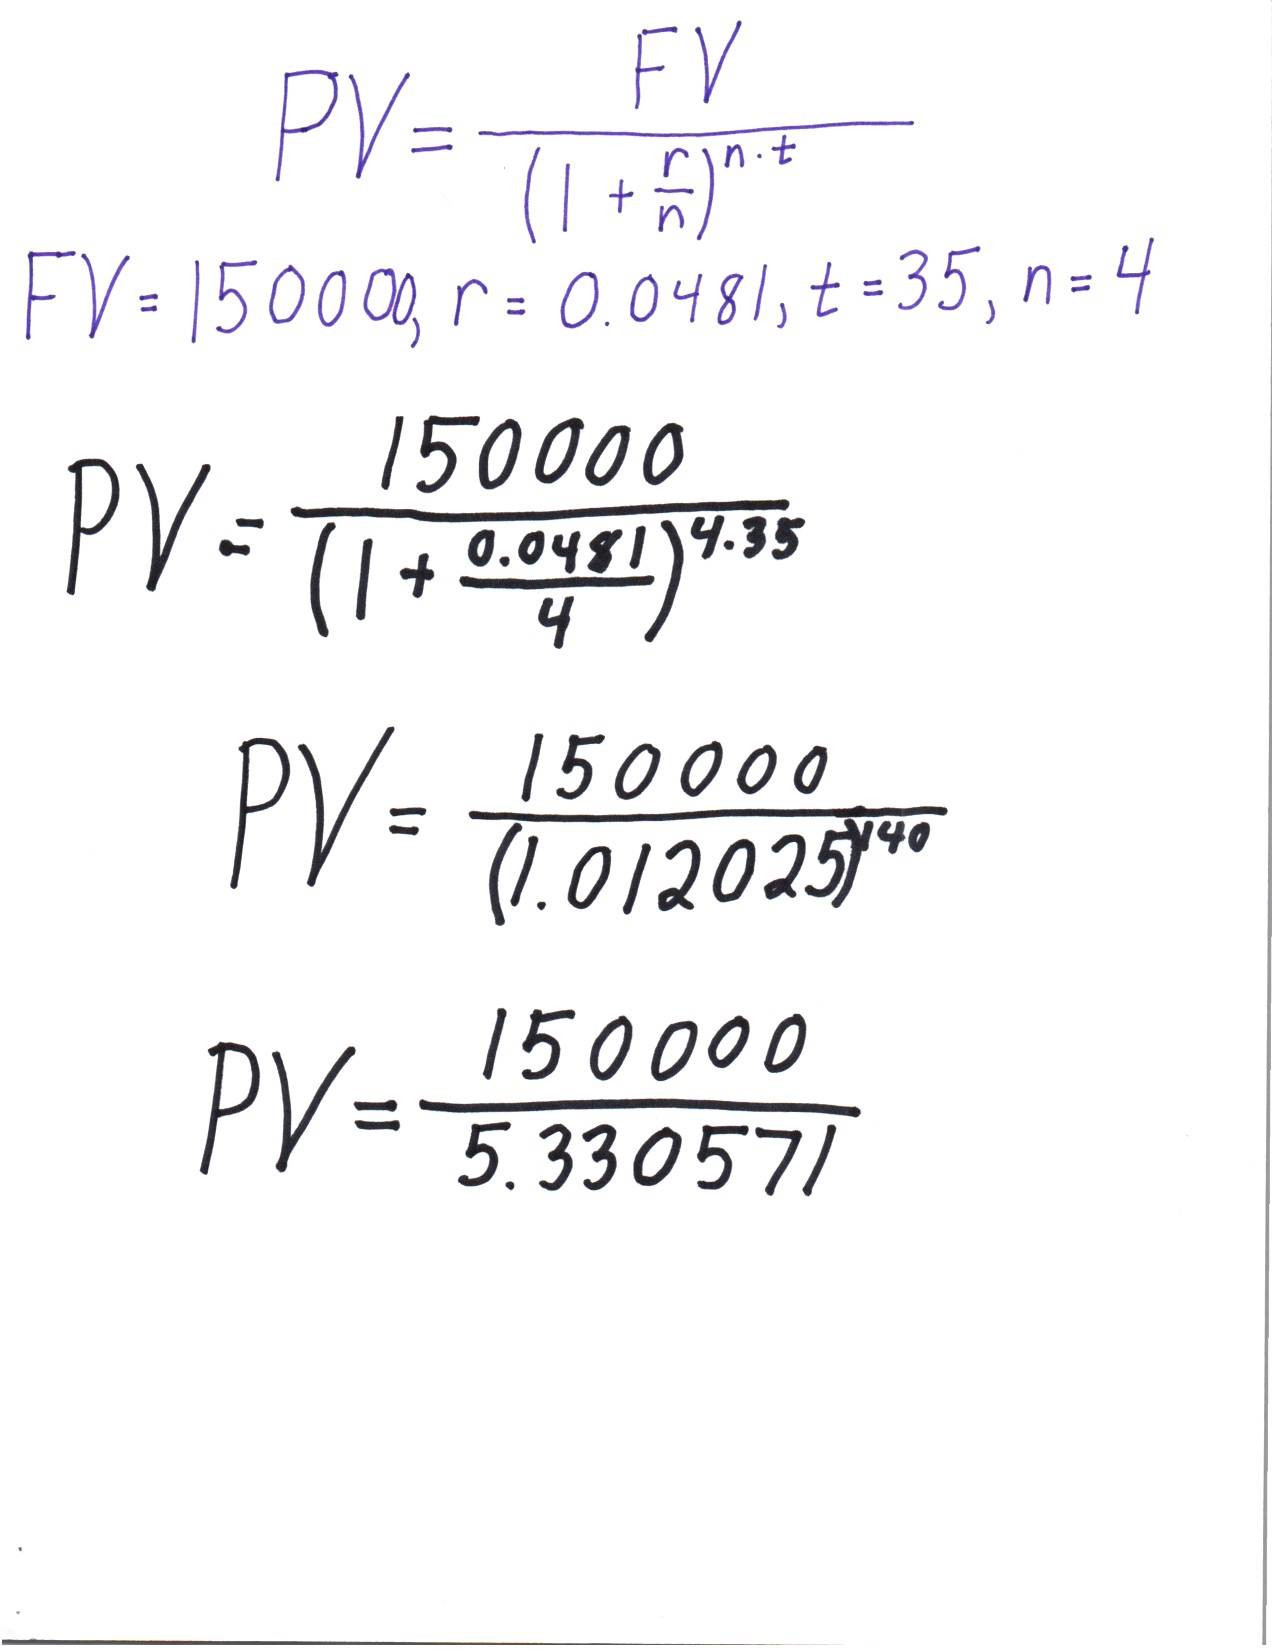 PV = FV / (1 + r/n)^n·t
FV = 150000, r = 0.0481, t = 35, n = 4
PV = 150000 / (1 + 0.0481/4)^4·35
PV = 150000 / (1.012025)^140
PV = 150000 / 5.330571